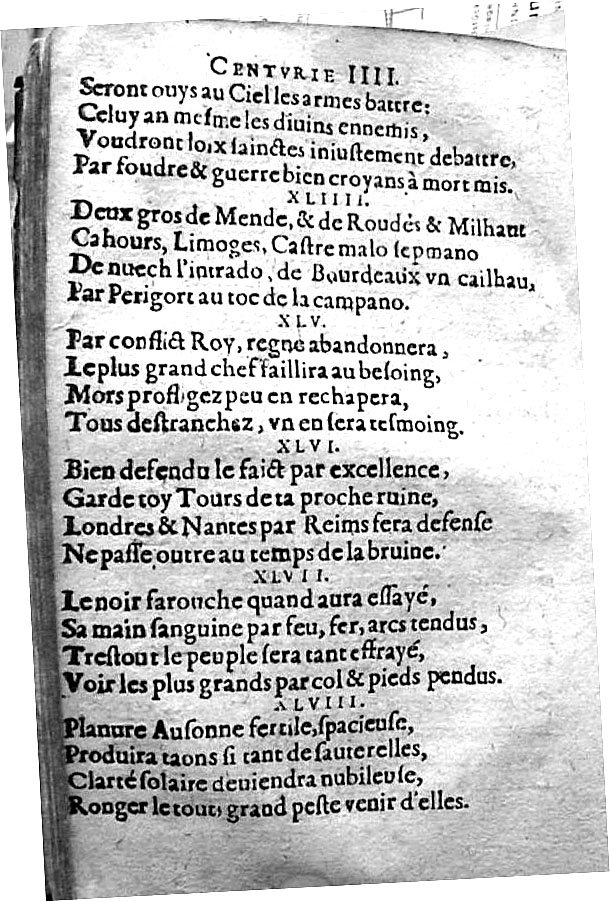 CENTVRIE IIII.
Seront ouys au Ciel les armes battre:
Celuy an meſme les diuins ennemis,
Voudront loix ſainctes iniuſtement debattre,
Par foudre & guerre bien croyans à mort mis.
XLIIII.
Deux gros de Mende, & de Roudés & Milhaut
Cahours, Limoges, Caſtre malo ſepmano
De nuech l'intrado, de Bourdeaux vn cailhau,
Par Perigort au toc de la campano.
XLV.
Par conflict Roy, regne abandonnera,
Le plus grand chef faillira au beſoing,
Mors profligez peu en rechapera,
Tous deſtranchez, vn en ſera teſmoing.
XLVI.
Bien defendu le faict par excellence,
Garde toy Tours de ta proche ruine,
Londres & Nantes par Reims fera defenſe
Ne paſſe outre au temps de la bruine.
XLVII.
Le noir farouche quand aura eſſayé,
Sa main ſanguine par feu, fer, arcs tendus,
Treſtout le peuple ſera tant effrayé,
Voir les plus grands par col & pieds pendus.
XLVIII.
Planure Auſonne fertile, ſpacieuſe,
Produira taons ſi tant de ſauterelles,
Clarté ſolaire deuiendra nubileuſe,
Ronger le tout, grand peſte venir d'elles.